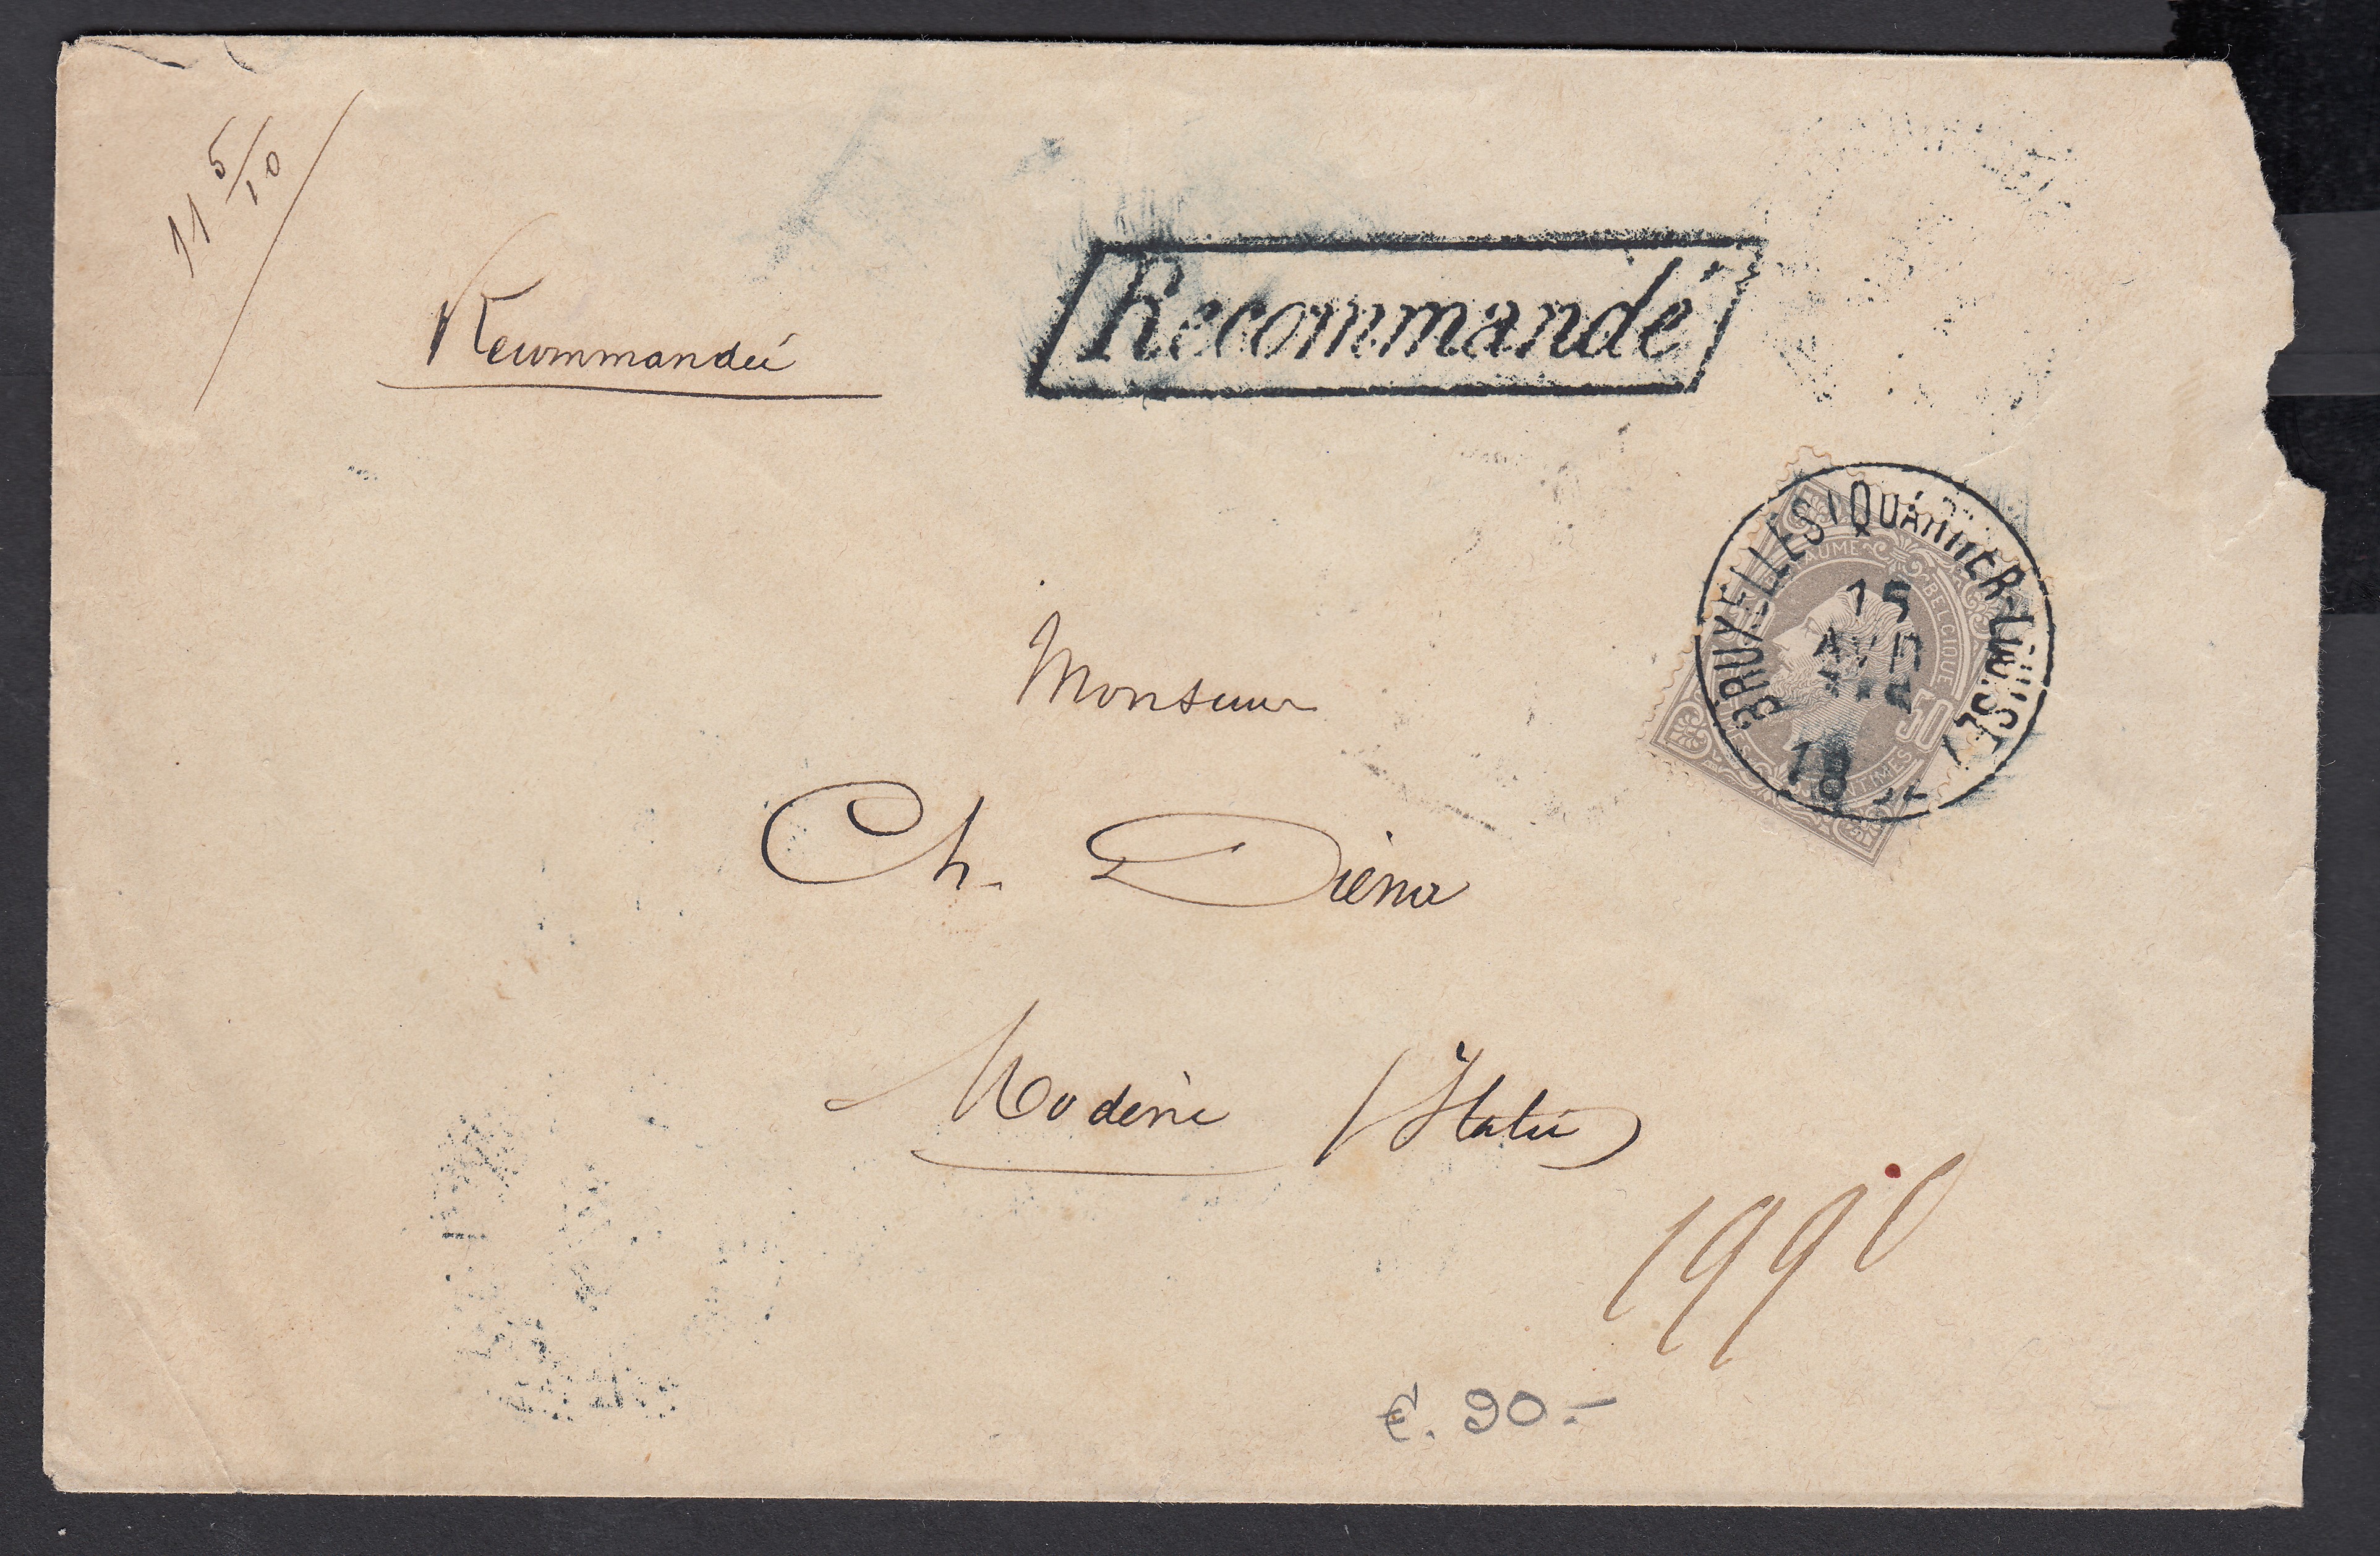 11 5/10
Recommandée
Recommandé
BRUXELLES (QUARTIER-LÉOPOLD)
15
AVR
18
ROYAUME BELGIQUE
CENTIMES
Monsieur
Ch. Diena
Modène (Italie)
1990
€. 90.-